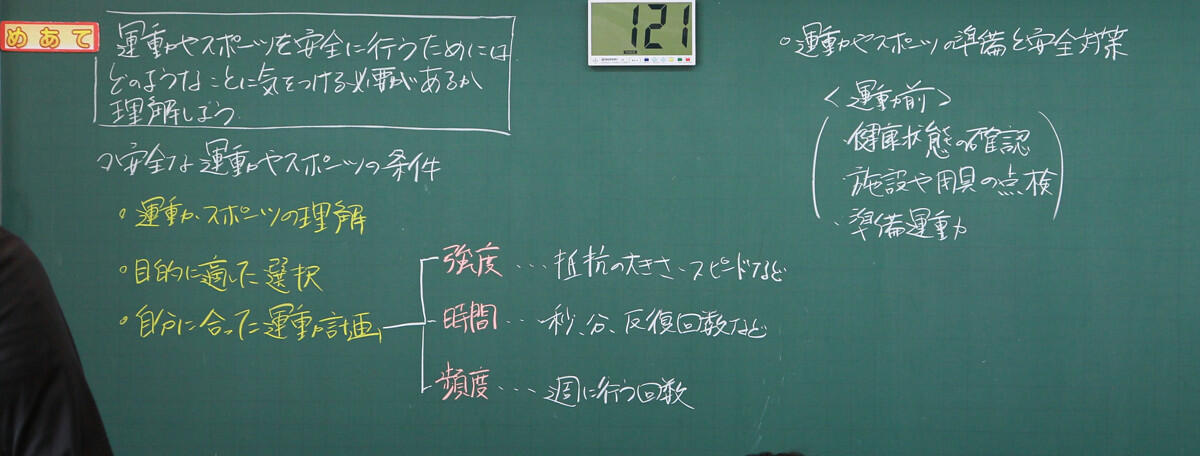 めあて
運動やスポーツを安全に行うためには
どのようなことに気をつける必要があるか
理解しよう。
安全な運動やスポーツの条件
。運動・スポーツの理解
。目的に適した選択
。自分に合った運動計画
強度…抵抗の大きさ・スピードなど
時間…秒、分、反復回数など
頻度…週に行う回数
121
。運動やスポーツの準備と安全対策
＜運動前＞
・健康状態の確認
・施設や用具の点検
・準備運動